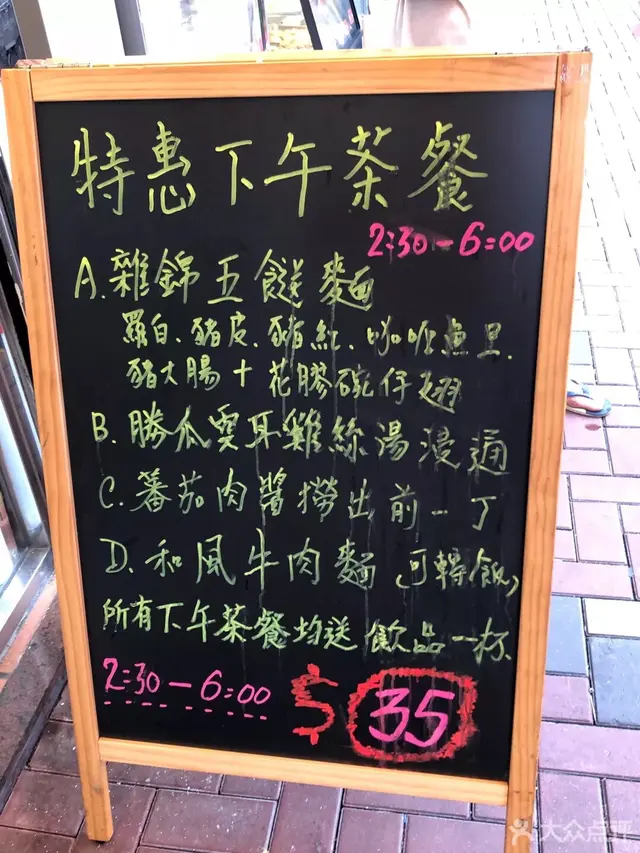 特惠下午茶餐
2:30-6:00
A.雜錦五餸麵
羅白.豬皮.豬紅.咖喱魚旦.
豬大腸+花膠碗仔翅
B.勝瓜雲耳雞絲湯浸通
C.蕃茄肉醬撈出前一丁
D.和風牛肉麵(可轉飯)
所有下午茶餐均送飲品一杯
2:30-6:00 $35
大众点评